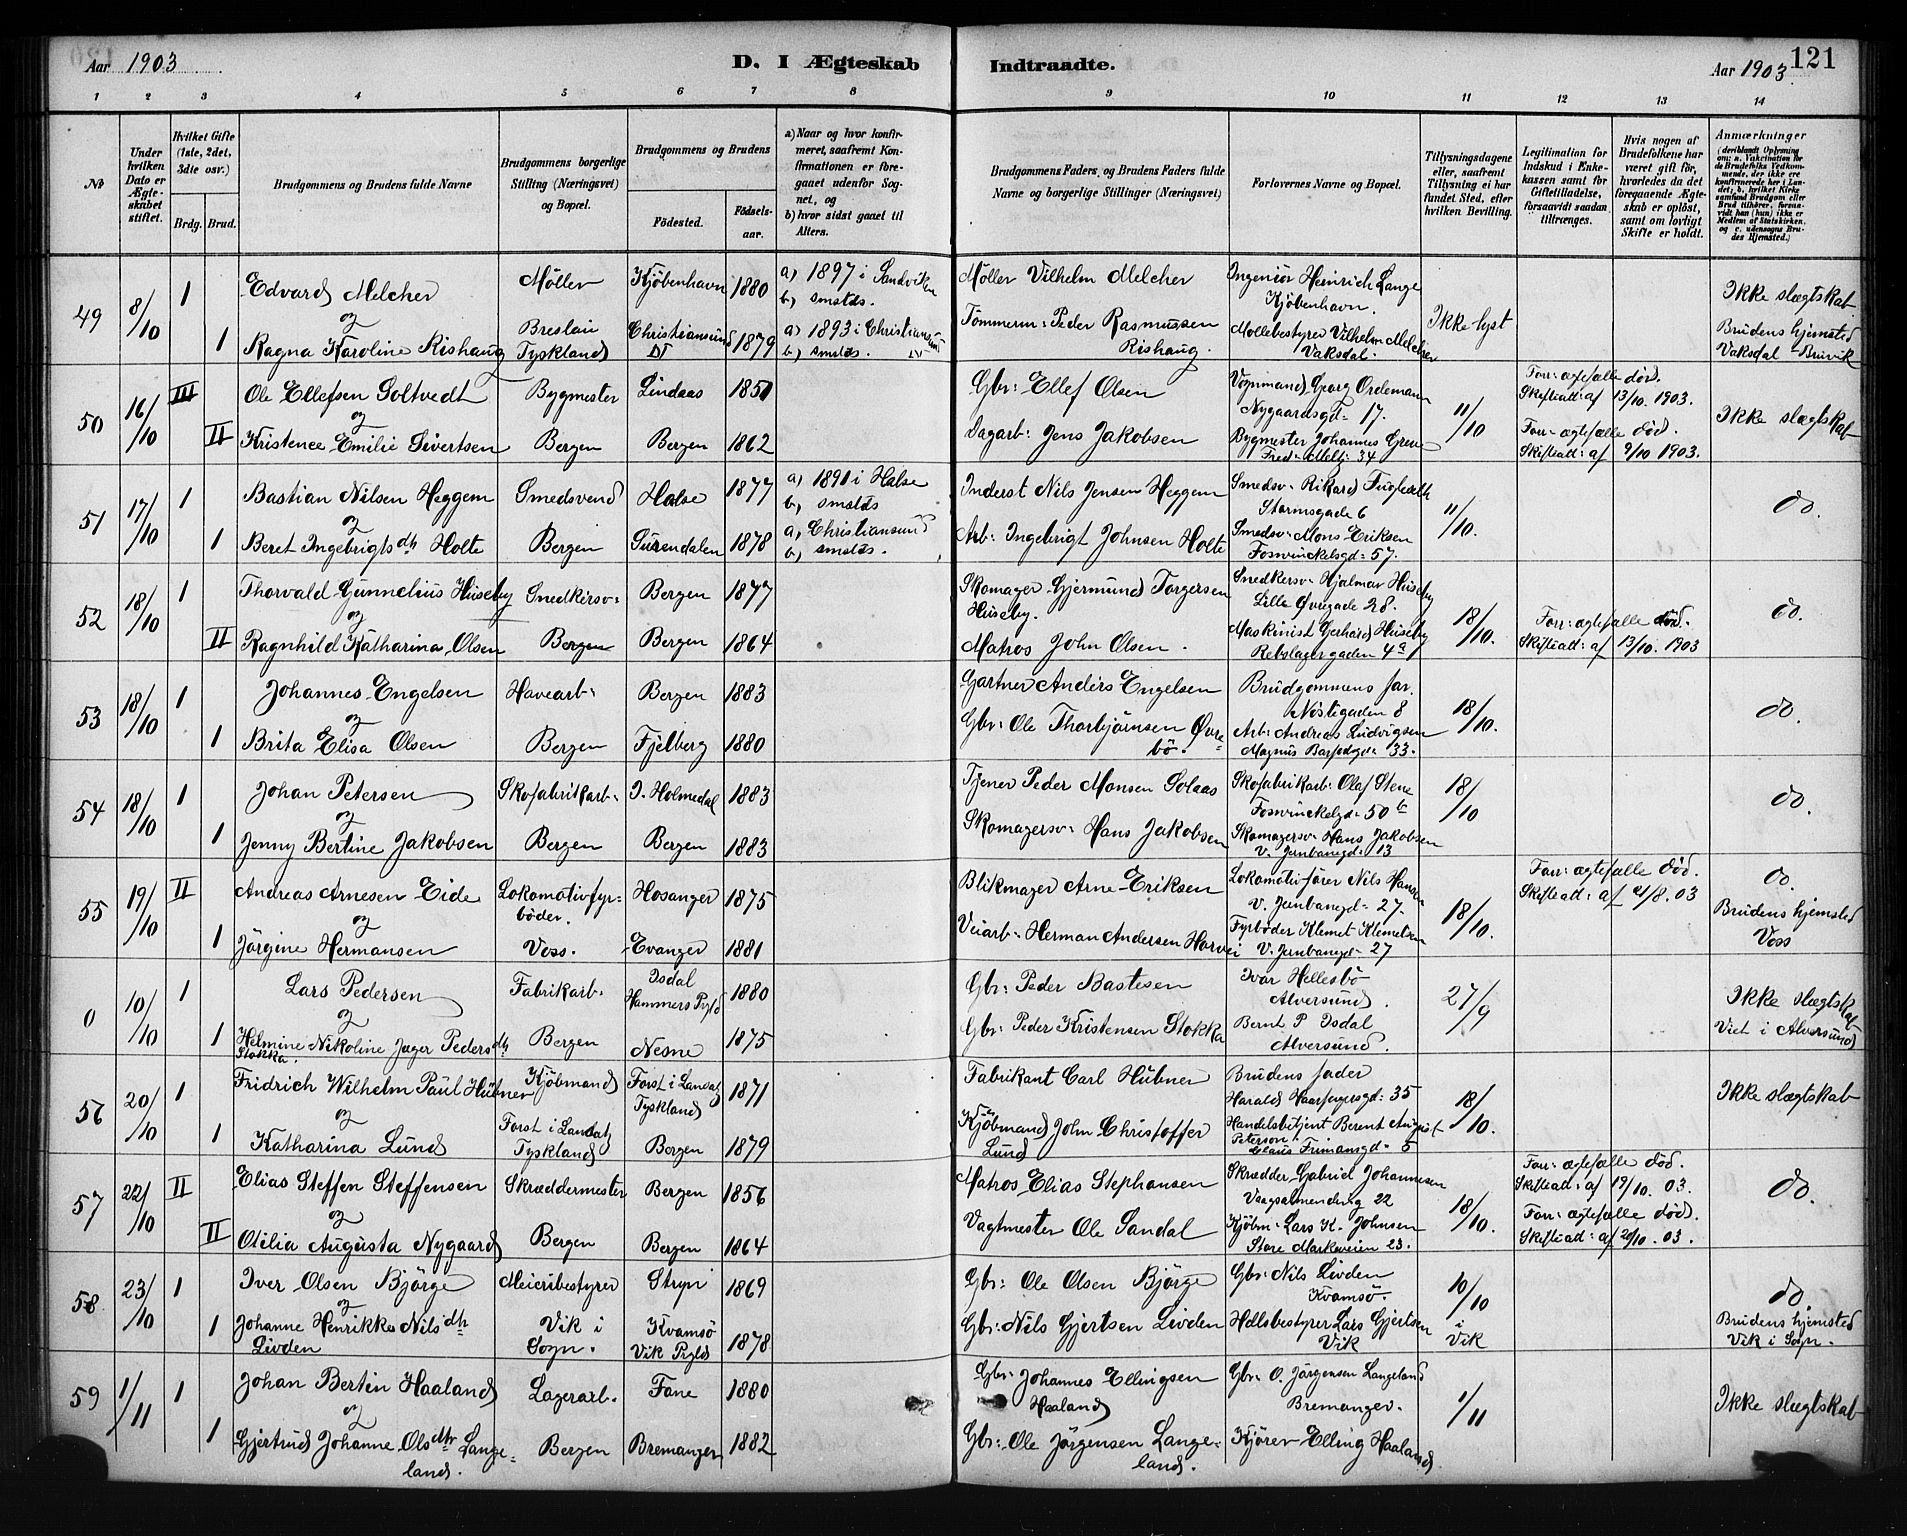 Aar 1903
D. I Ægteskab Indtraadte.
Aar 1903
121
1 2 3 4 5 6 7 8 9 10 11 12 13 14
№
Under hvilken Dato er Ægteskabet stiftet.
Hvilket Gifte (1ste, 2det, 3die osv.)
Brdg. Brud.
Brudgommens og Brudens fulde Navne
Brudgommens borgerlige Stilling (Næringsvei) og Bopæl.
Brudgommens og Brudens
Fødested.
Fødselsaar.
a) Naar og hvor konfirmeret, saafremt Konfirmationen er foregaaet udenfor Sognet, og
b) hvor sidst gaaet til Alters.
Brudgommens Faders og Brudens Faders fulde Navne og borgerlige Stillinger (Næringsvei)
Forlovernes Navne og Bopæl.
Tillysningsdagene eller, saafremt Tillysning ei har fundet Sted, efter hvilken Bevilling.
Legitimation for Indskud i Enkekassen samt for Giftetilladelse, forsaavidt saadan tiltrænges.
Hvis nogen af Brudefolkene har været gift før, hvorledes da det foregaaende Ægteskab er opløst, samt om lovligt Skifte er holdt.
Anmærkninger
(deriblandt Oplysning om: a. Vakcination for de Brudefolks Vedkommende, der ikke ere konfirmerede her i Landet; b. hvilket Kirkesamfund Brudgom eller Brud tilhører, forsaavidt han (hun) ikke er Medlem af Statskirken, og c. udensogns Brudes Hjemsted.)
49 8/10 1 Edvard Melcher Møller Kjøbenhavn 1880 a) 1897 i Sandviken b) smstds. Møller Vilhelm Melcher Ingeniør Heinrich Lange Kjöbenhavn. Ikke lyst Ikke slægtskab
og
1 Ragna Karoline Rishaug Breslau Tyskland Christiansund N 1879 a) 1893 i Christiansund N b) smstds. Tömmerm: Peder Rasmussen Rishaug. Møllebestyrer Vilhelm Melcher Vaksdal. Brudens hjemsted Vaksdal - Bruvik
50 16/10 III Ole Ellefsen Soltvedt Bygmester Lindaas 1851 Gbr: Ellef Olsen Vognmand Georg Ordemann Nygaardsgd: 17. 11/10 Forr: ægtefælle död. Skifteatt: af 13/10. 1903. Ikke slægtskab
og
II Kristence Emilie Sivertsen Bergen Bergen 1862 Dagarb: Jens Jakobsen Bygmester Johannes Greve Fred: Meltz: 34 Forr: ægtefælle död. Skifteatt: af 9/10 1903.
51 17/10 1 Bastian Nilsen Heggem Smedsvend Halse 1877 a) 1891 i Halse b) smstds Inderst Nils Jensen Heggem Smedsv: Rikard Stormsgade 6 11/10. do.
og
1 Beret Ingebrigtsdtr Holte Bergen Surendalen 1878 a) Christiansund b) smstds. Arb: Ingebrigt Johnsen Holte Smedsv: Mons Eriksen Fosvinckelsgd: 57.
52 18/10 1 Thorvald Gunnelius Huseby Snedkersv: Bergen 1877 Skomager Gjermund Torgersen Huseby. Snedkersv: Hjalmar Huseby Lille Øvregade 28. 18/10. Forr: ægtefælle död. Skifteatt: af 13/10. 1903 do.
og
II Ragnhild Katharina Olsen Bergen Bergen 1864 Matros John Olsen. Maskinist Gerhard Huseby Rebslagergaden 4a
53 18/10 1 Johannes Engelsen Havearb: Bergen 1883 Gartner Anders Engelsen Brudgommens far. Nöstegaden 8 18/10. do.
og
1 Brita Elisa Olsen Bergen Fjelberg 1880 Gbr: Ole Thorbjörnsen Øvrebö. Arb: Andreas Ludvigsen Magnus Barfodgd: 33.
54 18/10 1 Johan Petersen Skofabrikarb: Y. Holmedal 1883 Tjener Peder Monsen Solaas Skofabrikarb: Olaf Stene Fosvinckelgd: 50 b 18/10 do.
og
1 Jenny Bertine Jakobsen Bergen Bergen 1883 Skomagersv: Hans Jakobsen Skomagersv: Hans Jakobsen V. Jernbanegd: 13
55 19/10 II Andreas Arnesen Eide Lokomotivfyrböder. Hosanger 1875 Blikmager Arne Eriksen Lokomotivförer Nils Hansen V. Jernbanegd: 27. 18/10. Forr: ægtefælle död. Skifteatt: af 21/8. 03 do.
og
1 Jörgine Hermansen Voss. Evanger 1881 Veiarb: Herman Andersen Horvei Fyrböder Klemet Klemetsen V. Jernbanegd: 27 Brudens hjemsted Voss
0 10/10 1 Lars Pedersen Fabrikarb: Isdal Hammers Prgld 1880 Gbr: Peder Bastesen Ivar Hellesbö Alversund. 27/9 Ikke slægtskab
og
1 Helmine Nikoline Jæger Pedersdtr Stokka. Bergen Nesne 1875 Gbr: Peder Kristensen Stokka Bernt P. Isdal Alversund. Viet i Alversund
56 20/10 1 Fridrich Wilhelm Paul Hübner Kjöbmand Forst i Lausitz Tyskland 1871 Fabrikant Carl Hübner Brudens fader Harald Haarfagersgd: 35 18/10. Ikke slægtskab
og
1 Katharina Lund Forst i Lausitz Tyskland Bergen 1879 Kjöbmand John Christoffer Lund Handelsbetjent Berent August Peterson Claus Frimansgd: 5
57 22/10 II Elias Steffen Steffensen Skræddermester Bergen 1856 Matros Elias Stephansen Skrædder Gabriel Johannesen Vaagsalmending 22 18/10. Forr: ægtefælle död. Skifteatt: af 19/10. 03. do.
og
II Otilia Augusta Nygaard Bergen Bergen 1864 Vagtmester Ole Sandal Kjöbm: Lars K. Johnsen Store Markeveien 23. Forr: ægtefælle död. Skifteatt: af 20/10. 03.
58 23/10 1 Iver Olsen Bjørge Meieribestyrer Stryn 1869 Gbr: Ole Olsen Bjørge Gbr: Nils Livden Kvamsö. 10/10 i Vik do
og
1 Johanne Henrikke Nilsdtr Livden Vik i Sogn. Kvamsö Vik Prgld 1878 Gbr: Nils Gjertsen Livden Lars Gjertsen Vik Brudens hjemsted Vik i Sogn.
59 1/11 1 Johan Bertin Haaland Lagerarb. Fane 1880 Gbr: Johannes Ellingsen Haaland Gbr: O. Jörgensen Langeland Bremanger. 1/11 Ikke slægtskab
og
1 Gjertrud Johanne Olsdtr Langeland. Bergen Bremanger 1882 Gbr: Ole Jörgensen Langeland. Kjörer Elling Haaland